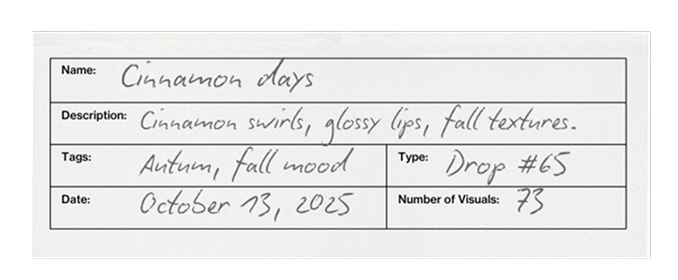 Name: Cinnamon days
Description: Cinnamon swirls, glossy lips, fall textures.
Tags: Autum, fall mood Type: Drop #65
Date: October 13, 2025 Number of Visuals: 73